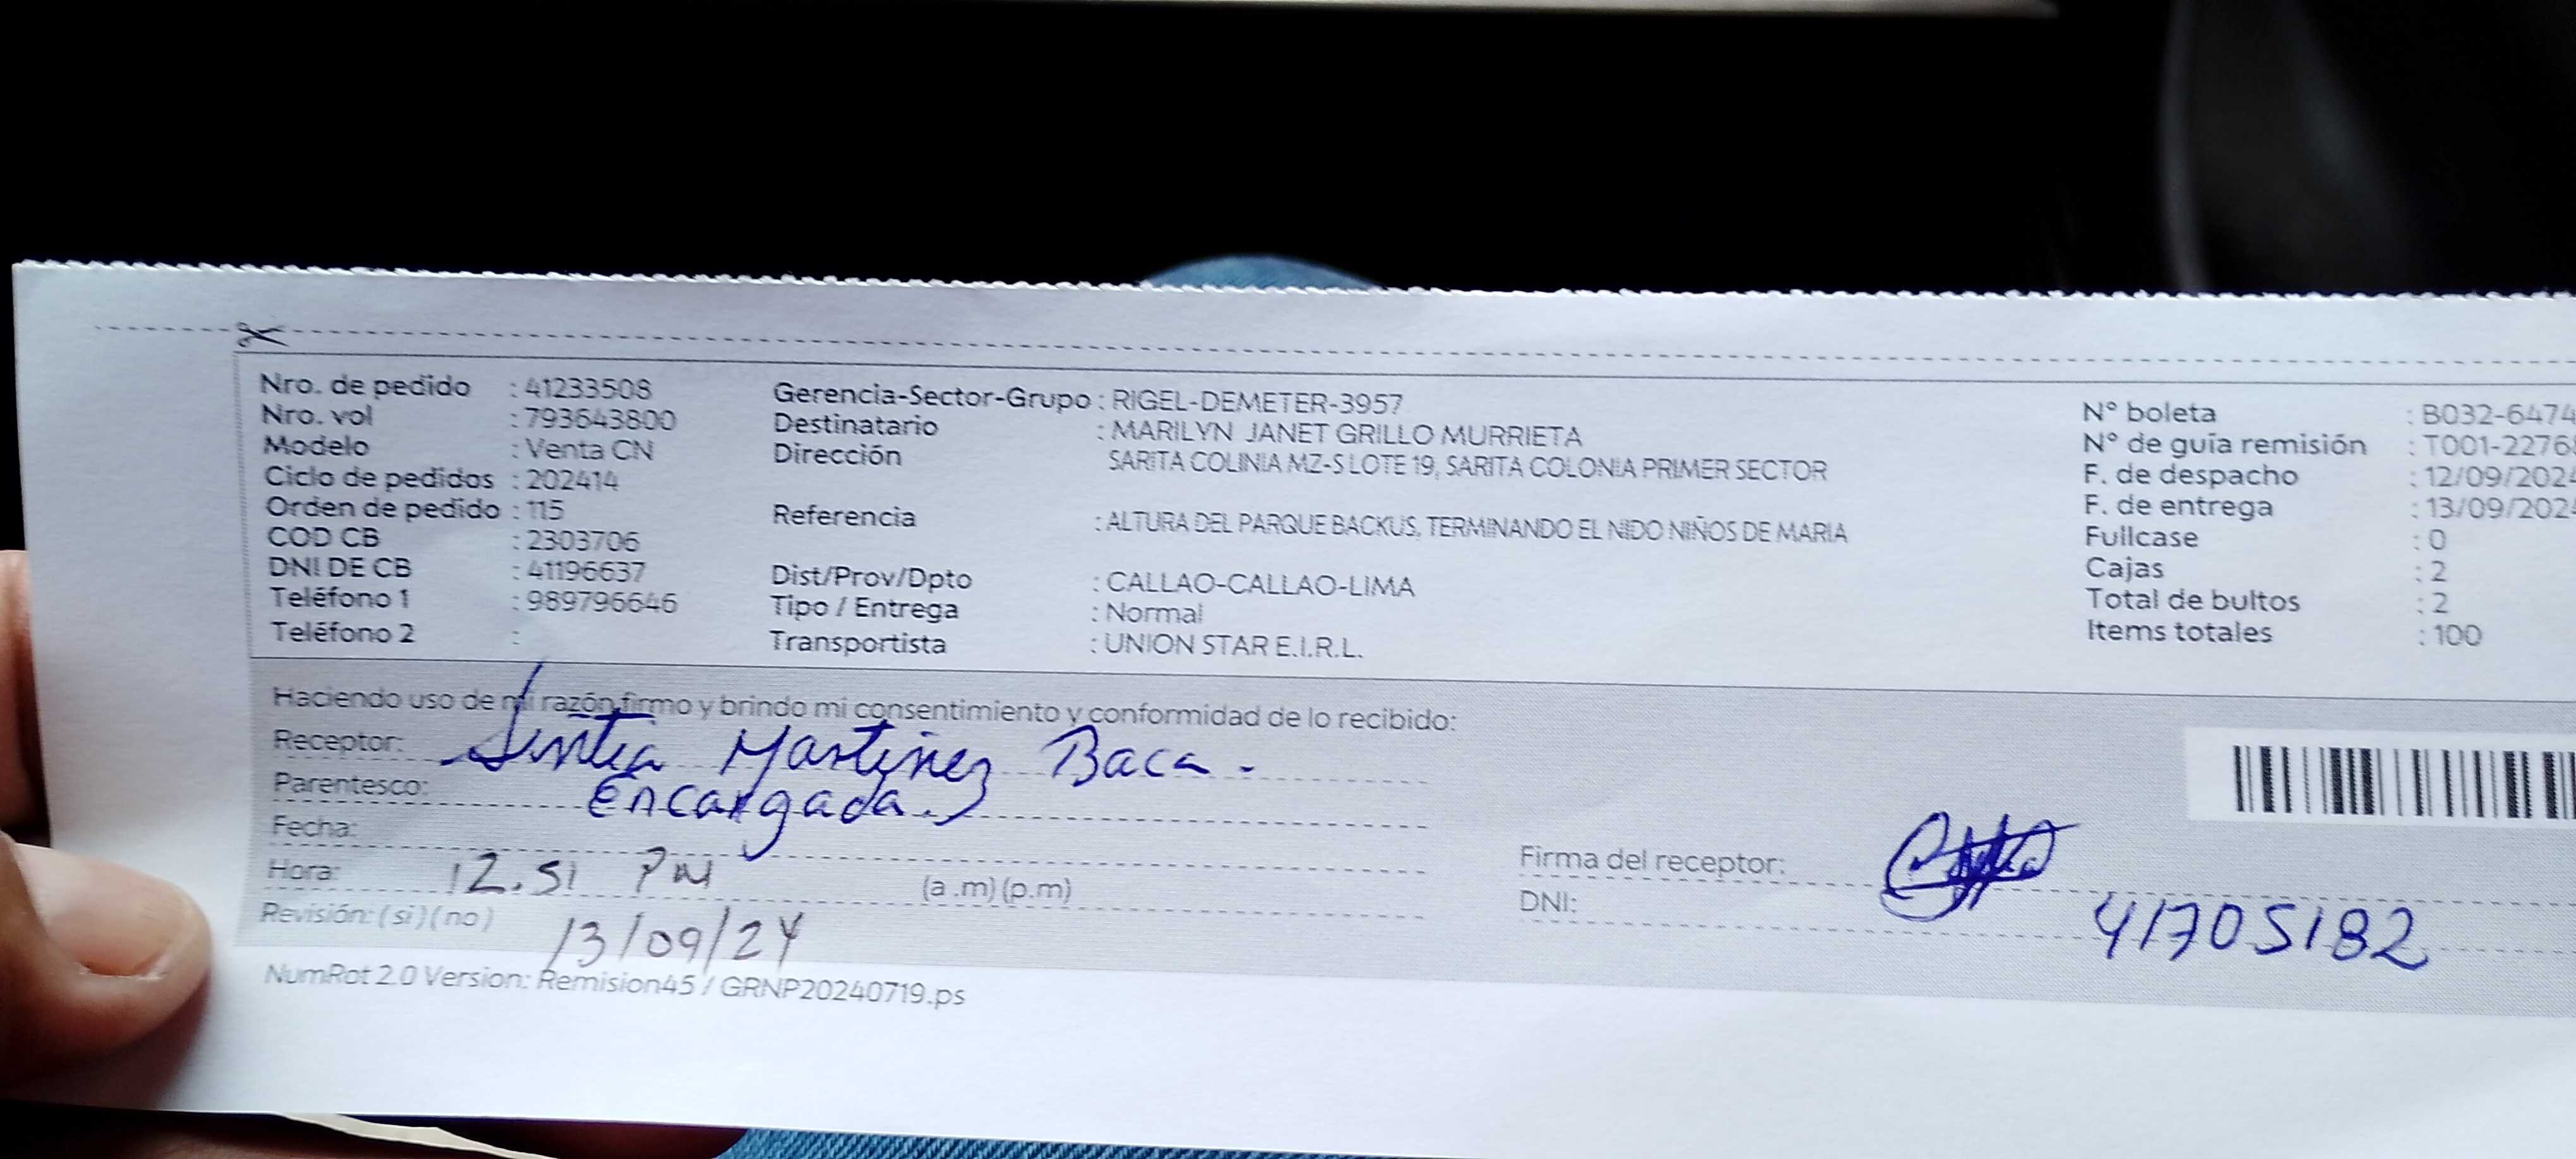 Nro. de pedido : 41233508
Nro. vol : 793643800
Modelo : Venta CN
Ciclo de pedidos : 202414
Orden de pedido : 115
COD CB : 2303706
DNI DE CB : 41196637
Teléfono 1 : 989796646
Teléfono 2 :
Gerencia-Sector-Grupo : RIGEL-DEMETER-3957
Destinatario : MARILYN JANET GRILLO MURRIETA
Dirección SARITA COLINIA MZ-S LOTE 19, SARITA COLONIA PRIMER SECTOR
Referencia : ALTURA DEL PARQUE BACKUS, TERMINANDO EL NIDO NIÑOS DE MARIA
Dist/Prov/Dpto : CALLAO-CALLAO-LIMA
Tipo / Entrega : Normal
Transportista : UNION STAR E.I.R.L.
N° boleta : B032-6474
N° de guía remisión : T001-2276
F. de despacho : 12/09/2024
F. de entrega : 13/09/202
Fullcase : 0
Cajas : 2
Total de bultos : 2
Items totales : 100
Haciendo uso de mi razón firmo y brindo mi consentimiento y conformidad de lo recibido:
Receptor: Sintia Martinez Baca.
Parentesco: Encargada.
Fecha:
Hora: 12.51 PM (a .m) (p.m)
Revisión: ( si ) ( no ) 13/09/24
Firma del receptor:
DNI: 41705182
NumRot 2.0 Version: Remision45 / GRNP20240719.ps